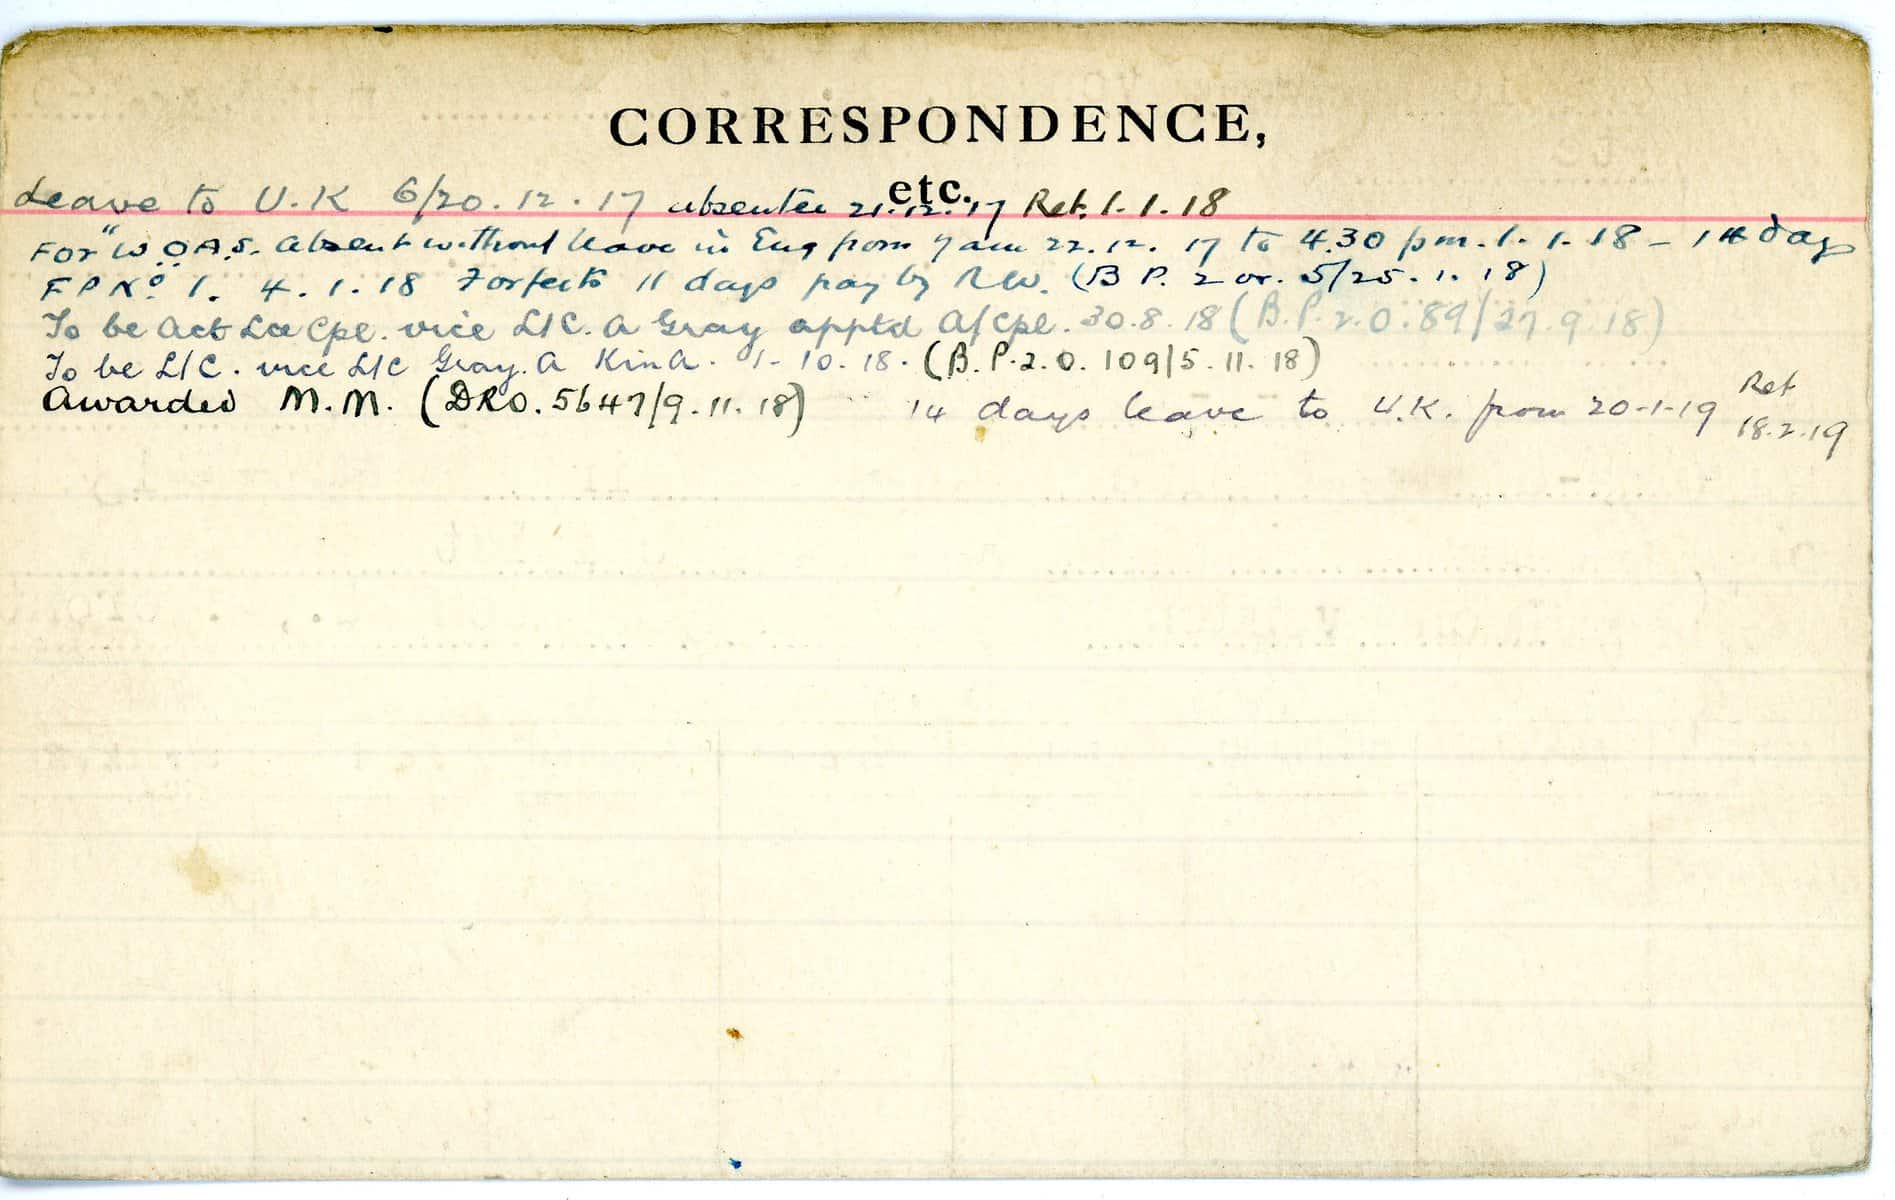 CORRESPONDENCE,
etc.
Leave to U.K 6/20.12.17 absentee 21.12.17 Ret. 1.1.18
For "W.O.A.S. absent without leave in Eng from 7 am 22.12.17 to 4.30 pm. 1.1.18 – 14 days
F P No. 1. 4.1.18 Forfeits 11 days pay by R.W. (B P. 2 or. 5/25.1.18)
To be Act Lce Cpl. vice L/C. A Gray apptd A/Cpl. 30.8.18 (B.P.2.O.89/27.9.18)
To be L/C. vice L/C Gray. A K in A. 1-10.18. (B.P.2.O. 109/5.11.18)
Awarded M.M. (DRO.5647/9.11.18) 14 days leave to U.K. from 20-1-19 Ret
18.2.19